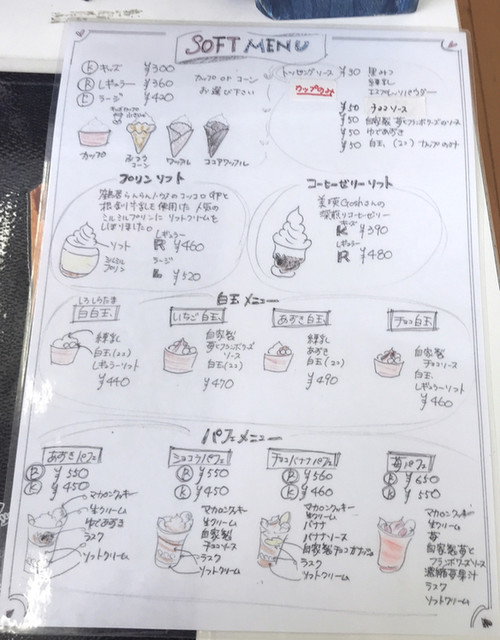 SOFT MENU
K キッズ ¥300
R レギュラー ¥360
L ラージ ¥420
カップ or コーン
お選び下さい
トッピングソース ¥30 黒みつ
練乳
エスプレッソパウダー
カップのみ
¥50 チョコソース
¥50 自家製 苺とフランボワーズのソース
¥50 ゆであずき
¥50 白玉 (2コ) カップのみ
カップ
ワッフル
ココアワッフル
プリンソフト
ソフト
プリン
レギュラー
R ¥460
ラージ
L ¥520
コーヒーゼリーソフト
美瑛
コーヒーゼリー
キッズ
K ¥390
レギュラー
R ¥480
白玉メニュー
しろしらたま
白白玉
練乳
白玉(2コ)
レギュラーソフト
¥440
いちご白玉
自家製
苺とフランボワーズ
ソース
白玉(2コ)
¥470
あずき白玉
練乳
あずき
白玉(2コ)
¥490
チョコ白玉
自家製
チョコソース
白玉
レギュラーソフト
¥460
パフェメニュー
あずきパフェ
R ¥550
K ¥450
マカロンクッキー
生クリーム
ゆであずき
ラスク
ソフトクリーム
ショコラパフェ
R ¥550
K ¥450
マカロンクッキー
生クリーム
自家製
チョコソース
ラスク
ソフトクリーム
チョコバナナパフェ
R ¥560
K ¥460
マカロンクッキー
生クリーム
バナナ
バナナソース
自家製チョコ
ラスク
ソフトクリーム
苺パフェ
R ¥650
K ¥550
マカロンクッキー
生クリーム
苺
自家製苺と
フランボワーズソース
濃縮苺果汁
ラスク
ソフトクリーム